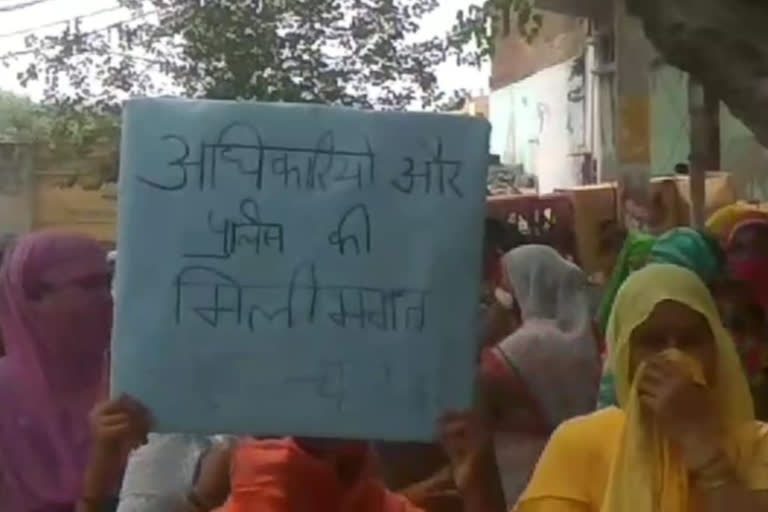 अधिकारियो और
पुलिस की
मिलीभगत